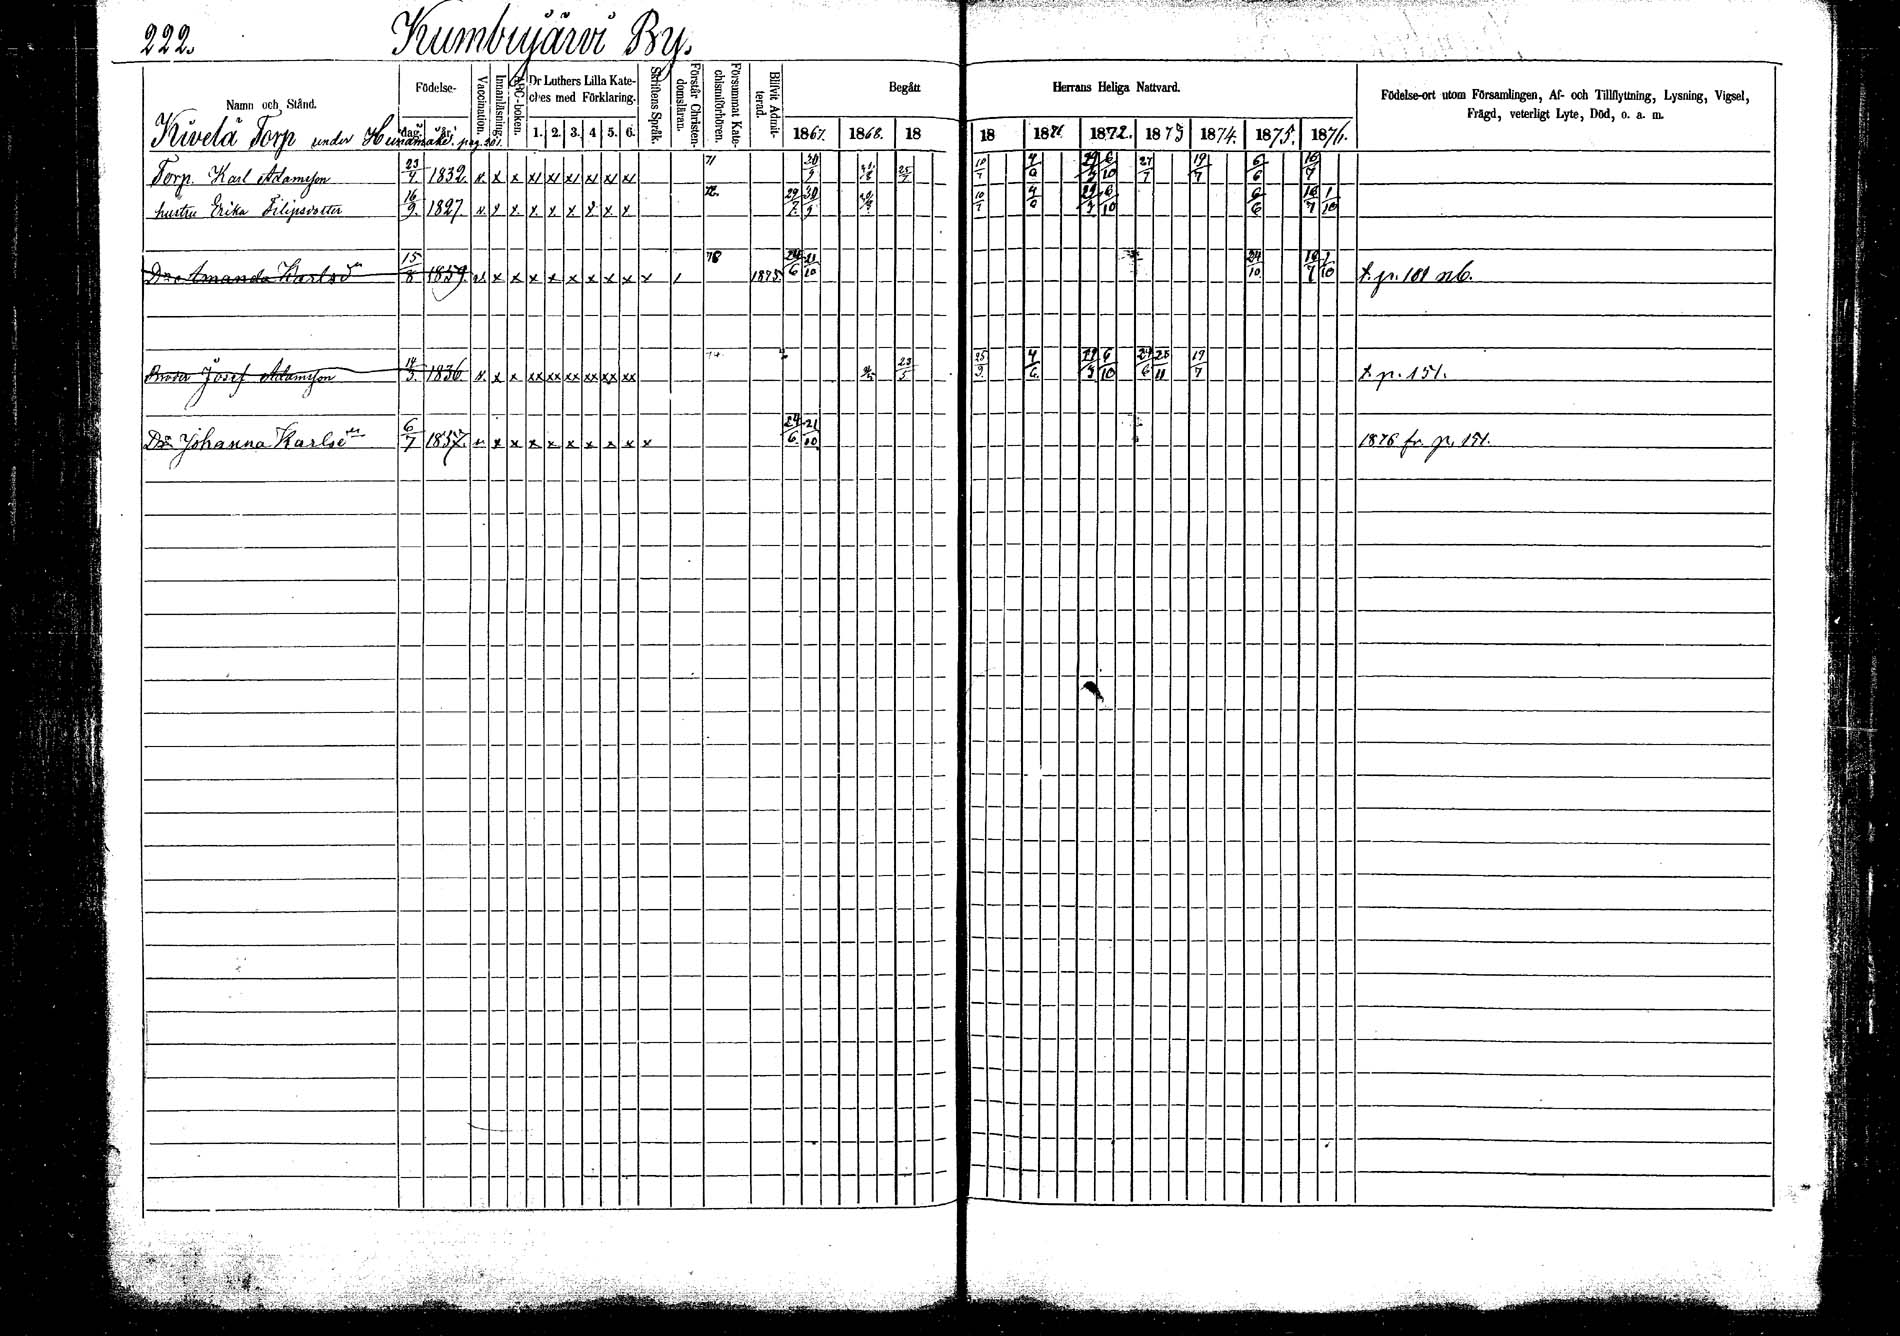 222. Kumbujärvi By.
Namn och Stånd. Födelse- dag. år. Vaccination. Innanläsning. ABC-boken. Dr Luthers Lilla Kateches med Förklaring. 1. 2. 3. 4 5. 6. Skriftens Språk. Förstår Christendomsläran. Försummat Katechismiförhören. Blifvit Admitterad. Begått Herrans Heliga Nattvard. 1867. 1868. 18 18 1871 1872. 1873 1874. 1875. 1876. Födelse-ort utom Församlingen, Af- och Tillflyttning, Lysning, Vigsel, Frägd, veterligt Lyte, Död, o. a. m.
Kivelä Torp under pag. 201.
Torp. Karl Adamsson 1832. v. x x xx xx xx xx xx xx 71 30/9 25/7 10/7 4/6 6/10 27/7 19/7 6/6 16/7
hustru Erika Filipsdotter 16/9. 1827 v. x x. x. x x x x x 72. 30/9 10/7 4/6 6/10 6/6 16/7 1/10
Dr Amanda Karlsd 15/8 1859. v. x x x x x x x x x 1 78 1875. 24/6 21/10 24/10. 16/7 1/10 t. p. 101 nb.
Broder Josef Adamsson 14/3. 1836 v. x x xx xx xx xx xx xx 23/5 25/9. 4/6. 6/10 24/6 25/11 19/7 t. p. 151.
Dr Johanna Karlsd 6/7 1857. v x x x x x x x x x 24/6 21/10 1876 fr. p. 151.